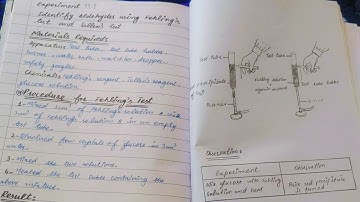 Experiment
Identify aldehydes using Fehling's
test and tollen's test
Materials Required:
Apparatus: Test tube, test tube holder
burner, water bath, match box, dropper
safety goggles
Chemicals: Fehling's reagent, Tollen's reagent,
glucose solution
Procedure for Fehling's Test
1- Mixed 5cm³ of Fehling's solution A with
of Fehling's solution B in an empty
test tube.
2- Dissolved few crystals of glucose in 5cm³
water.
3- Mixed the two solutions.
4- Heated the test tube containing the
above mixture.
Result:
Test Tube
Test tube
precipitate
Test tube holder
Burner
Observation:
Experiment
Observation
Mix glucose with Fehling
solution and heat
Brick red precipitate
is formed